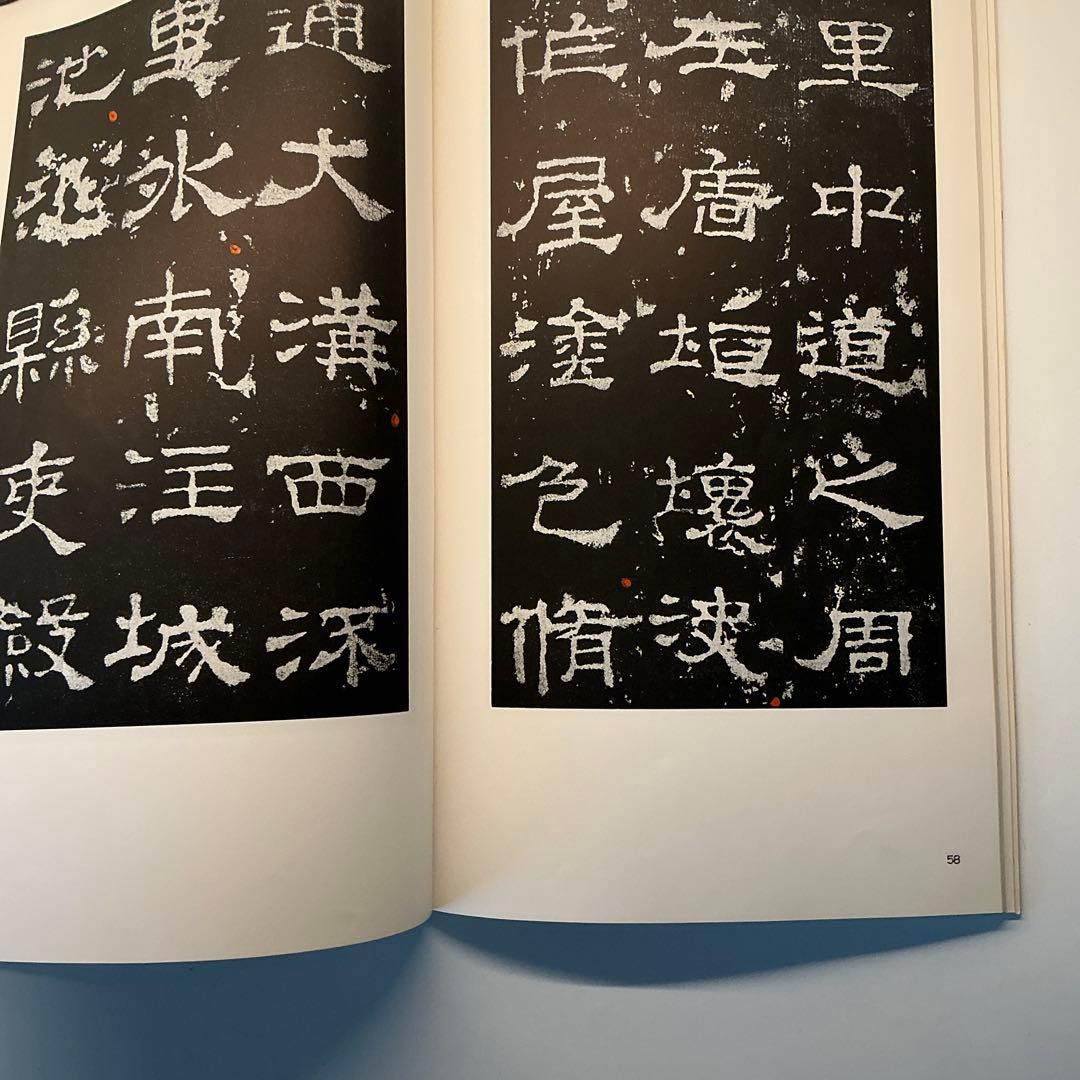 里中道之周
左廧垣壞決
作屋塗色脩
通大溝西流
里外南注城
池恐縣吏斂
58